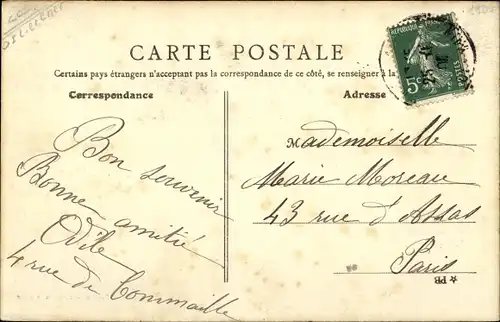 CARTE POSTALE
Certains pays étrangers n'acceptant pas la correspondance de ce côté, se renseigner à la
Correspondance
Adresse
RÉPUBLIQUE
POSTES
5c
Bon souvenir
Bonne amitié
Odile
4 rue de Commaille
Mademoiselle
Marie Moreau
43 rue d'Assas
Paris
PR